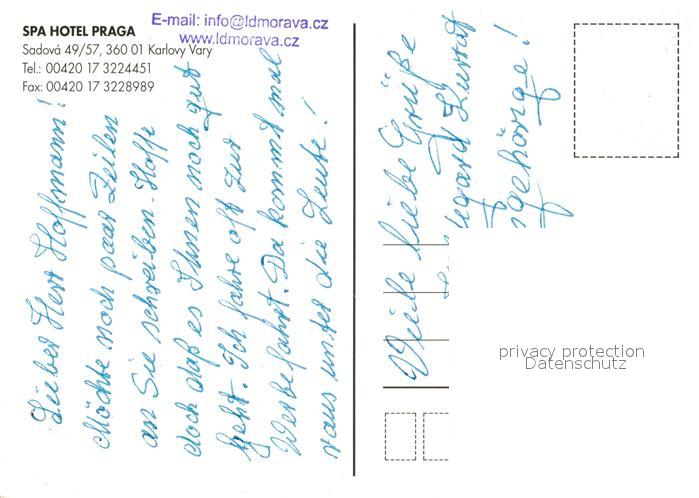 SPA HOTEL PRAGA
Sadová 49/57, 360 01 Karlovy Vary
Tel.: 00420 17 3224451
Fax: 00420 17 3228989
E-mail: info@ldmorava.cz
www.ldmorava.cz
Lieber Herr Hoffmann!
Möchte noch paar Zeilen
an Sie schreiben. Hoffe
doch daß es Ihnen noch gut
geht. Ich fahre oft zur
Werbefahrt. Da kommt mal
raus unter die Leute!
Viele liebe Grüße
gehörige!
privacy protection
Datenschutz